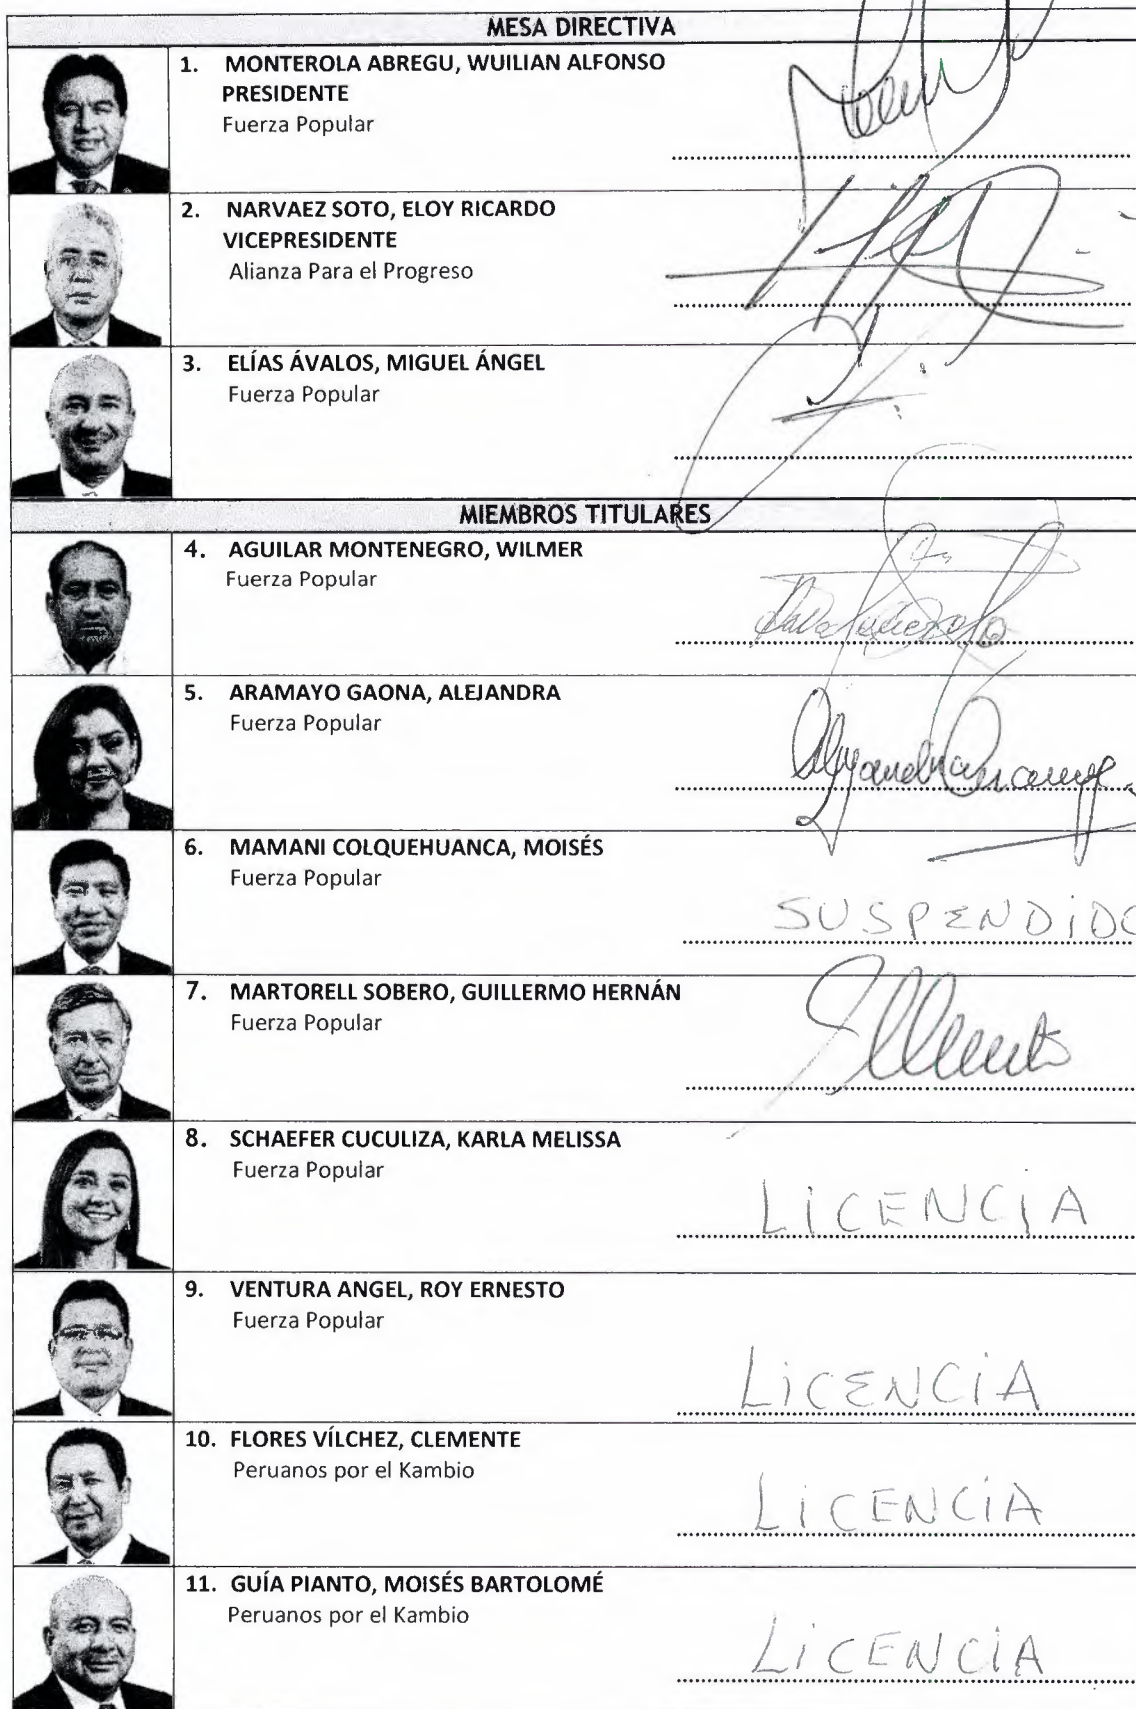 MESA DIRECTIVA
1. MONTEROLA ABREGU, WUILIAN ALFONSO
PRESIDENTE
Fuerza Popular
2. NARVAEZ SOTO, ELOY RICARDO
VICEPRESIDENTE
Alianza Para el Progreso
3. ELÍAS ÁVALOS, MIGUEL ÁNGEL
Fuerza Popular
MIEMBROS TITULARES
4. AGUILAR MONTENEGRO, WILMER
Fuerza Popular
5. ARAMAYO GAONA, ALEJANDRA
Fuerza Popular
6. MAMANI COLQUEHUANCA, MOISÉS
Fuerza Popular
SUSPENDIDO
7. MARTORELL SOBERO, GUILLERMO HERNÁN
Fuerza Popular
8. SCHAEFER CUCULIZA, KARLA MELISSA
Fuerza Popular
LICENCIA
9. VENTURA ANGEL, ROY ERNESTO
Fuerza Popular
LICENCIA
10. FLORES VÍLCHEZ, CLEMENTE
Peruanos por el Kambio
LICENCIA
11. GUÍA PIANTO, MOISÉS BARTOLOMÉ
Peruanos por el Kambio
LICENCIA